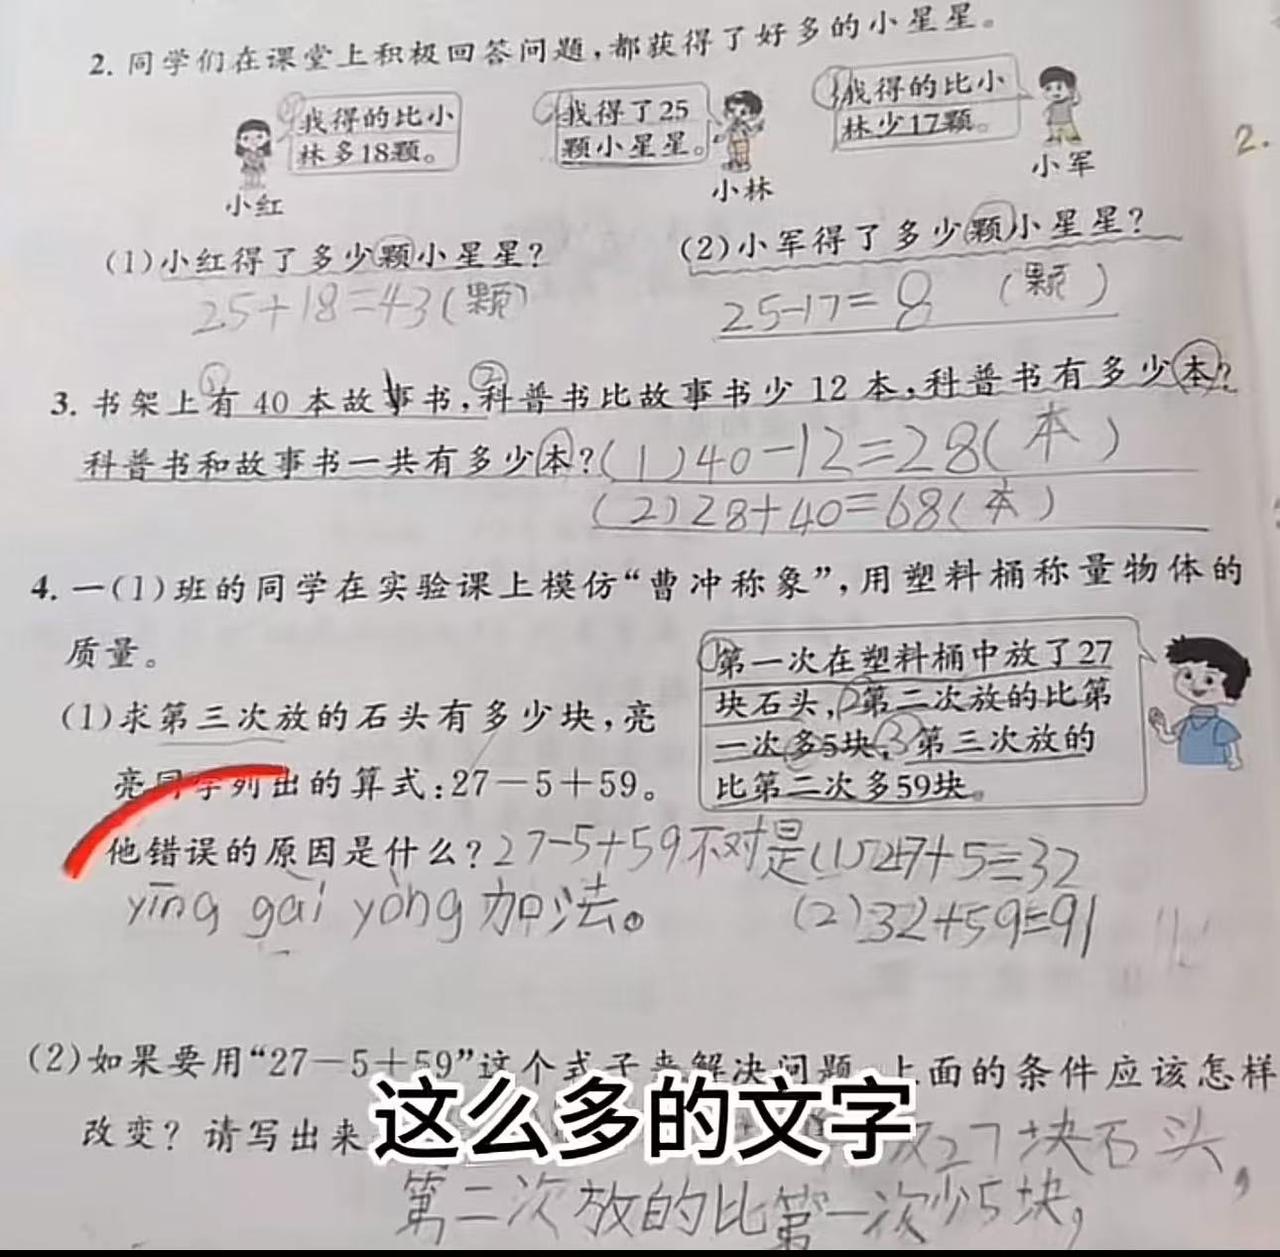 2. 同学们在课堂上积极回答问题，都获得了好多的小星星。
① 我得的比小
林多18颗。
小红
我得了25
颗小星星。
小林
我得的比小
林少17颗。
小军
(1)小红得了多少颗小星星？
25+18=43(颗)
(2)小军得了多少颗小星星？
25-17=8 (颗)
3. 书架上有40本故事书，科普书比故事书少12本，科普书有多少本？
科普书和故事书一共有多少本？(1)40-12=28(本)
(2)28+40=68(本)
4. 一(1)班的同学在实验课上模仿“曹冲称象”，用塑料桶称量物体的
质量。
①第一次在塑料桶中放了27
块石头，②第二次放的比第
一次多5块，③第三次放的
比第二次多59块。
(1)求第三次放的石头有多少块，亮
亮同学列出的算式：27-5+59。
他错误的原因是什么？27-5+59不对是(1)27+5=32
yīng gāi yòng 加法。 (2)32+59=91
(2)如果要用“27-5+59”这个式子来解决问题，上面的条件应该怎样
改变？请写出来 27块石头，
这么多的文字
第二次放的比第一次少5块，